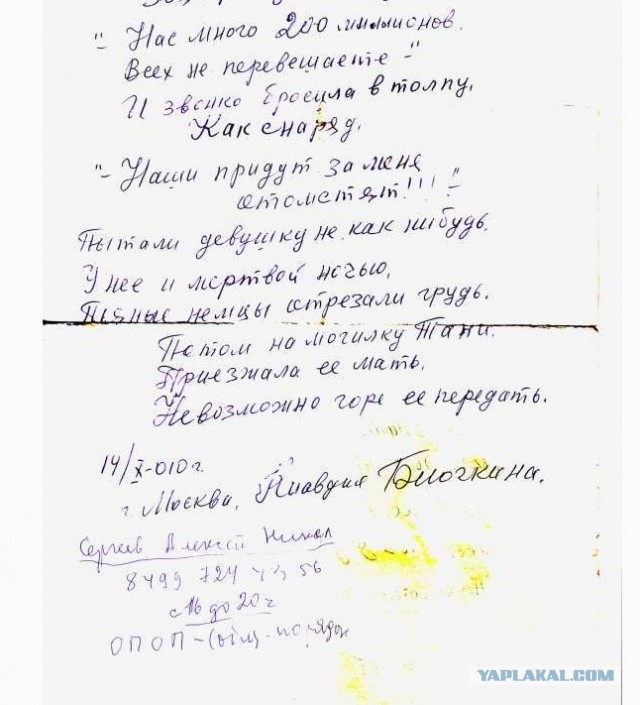 "- Нас много 200 миллионов.
Всех не перевешаете -"
И звонко бросила в толпу,
Как снаряд.
"- Наши придут за меня
отомстят!!! -"
Пытали девушку не как нибудь.
У нее и мертвой ночью,
Пяные немцы отрезали грудь.
Потом на могилку Тани.
Приезжала ее мать.
Невозможно горе ее передать.
14/X-010 г.
г. Москва, Клавдия Блочкина.
Сергеев Алексей Никол
8499 724 43 56
с 16 до 20 ч
ОПОП - (общ. порядок
YAPLAKAL.COM